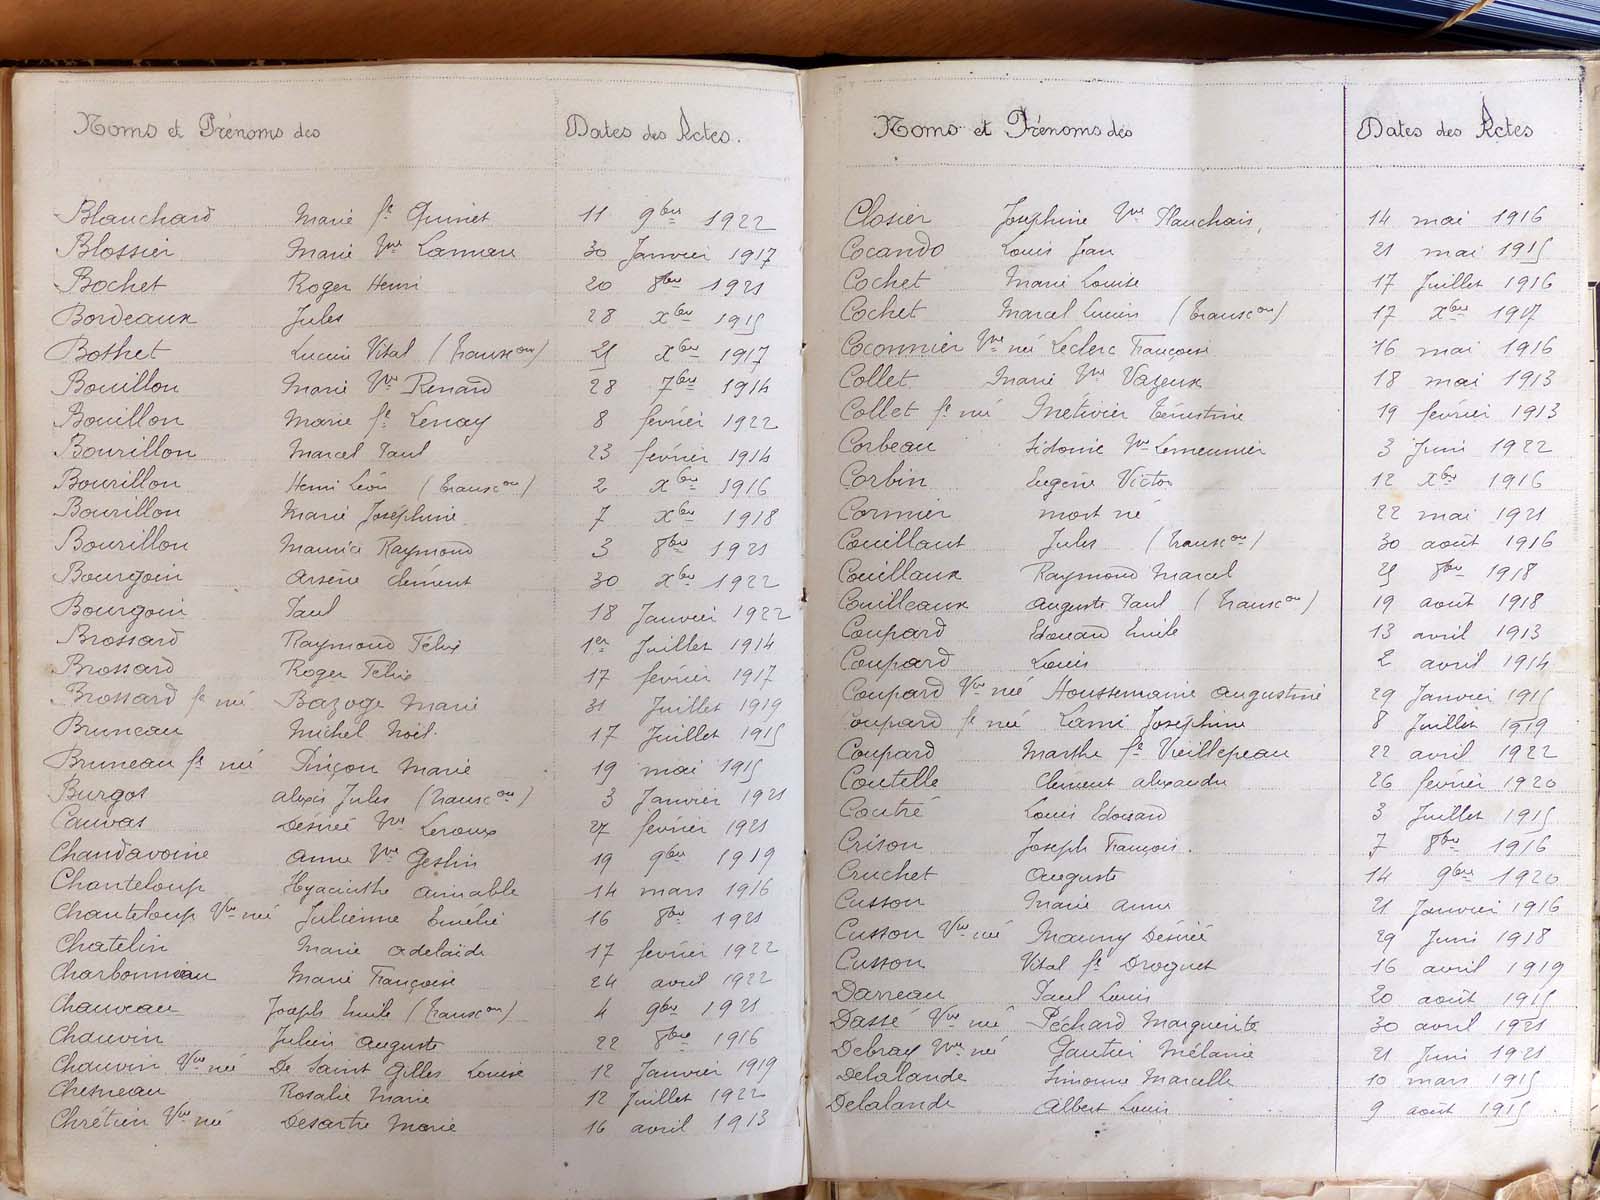 Noms et Prénoms des Dates des Actes.
Blanchard Marie fe Quinet 11 9bre 1922
Blossier Marie Vve Lamare 30 Janvier 1917
Bochet Roger Henri 20 8bre 1921
Bordeaux Jules 28 Xbre 1915
Bothet Lucien Vital (transcon) 25 Xbre 1917
Bouillon Marie Vve Renard 28 7bre 1914
Bouillon Marie fe Lenay 8 février 1922
Bourillon Marcel Paul 23 février 1914
Bourillon Henri Léon (transcon) 2 Xbre 1916
Bourillon Marie Joséphine 7 Xbre 1918
Bourillon Maurice Raymond 3 8bre 1921
Bourgoin Arsène Clément 30 Xbre 1922
Bourgoin Paul 18 Janvier 1922
Brossard Raymond Félix 1er Juillet 1914
Brossard Roger Félix 17 février 1917
Brossard fe née Bazoge Marie 31 Juillet 1919
Bruneau Michel Noël. 17 Juillet 1915
Bruneau fe née Pinçon Marie 19 mai 1915
Burgot Alexis Jules (transcon) 3 Janvier 1921
Cauvas Désirée Vve Leroux 27 février 1921
Chandavoine Anne Vve Geslin 19 9bre 1919
Chanteloup Hyacinthe Aimable 14 mars 1916
Chanteloup Vve née Julienne Emélie 16 8bre 1921
Chatelin Marie Adelaïde 17 février 1922
Charbonneau Marie Françoise 24 avril 1922
Chauveau Joseph Emile (transcon) 4 9bre 1921
Chauvin Julien Auguste 22 8bre 1916
Chauvin Vve née De Saint Gilles Louise 12 Janvier 1919
Chesneau Rosalie Marie 12 Juillet 1922
Chrétien Vve née Desartre Marie 16 avril 1913
Noms et Prénoms des Dates des Actes
Closier Joséphine Vve Plauchais, 14 mai 1916
Cocando Louis Jean 21 mai 1915
Cochet Marie Louise 17 Juillet 1916
Cochet Marcel Lucien (transcon) 17 Xbre 1917
Coconnier Vve née Leclerc Françoise 16 mai 1916
Collet Marie Vve Vazeux 18 mai 1913
Collet fe née Métivier Ernestine 19 février 1913
Corbeau Sidonie Vve Lemeunier 3 Juin 1922
Corbin Eugène Victor 12 Xbre 1916
Cormier mort né 22 mai 1921
Couillaut Jules (transcon) 30 août 1916
Couillaux Raymond Marcel 25 8bre 1918
Couilleaux Auguste Paul (transcon) 19 août 1918
Coupard Edouard Emile 13 avril 1913
Coupard Louis 2 avril 1914
Coupard Vve née Houssemaine Augustine 29 Janvier 1915
Coupard fe née Lami Joséphine 8 Juillet 1919
Coupard Marthe fe Vieillepeau 22 avril 1922
Coutelle Clement Alexandre 26 février 1920
Coutré Louis Edouard 3 Juillet 1915
Crison Joseph François. 7 8bre 1916
Cruchet Auguste 14 9bre 1920
Cusson Marie Anne 21 Janvier 1916
Cusson Vve née Mauny Désirée 29 Juin 1918
Cusson Vital fe Droguet 16 avril 1919
Darreau Paul Louis 20 août 1915
Dassé Vve née Péchard Marguerite 30 avril 1921
Debray Vve née Gautier Mélanie 21 Juin 1921
Delalande Simonne Marcelle 10 mars 1915
Delalande Albert Louis 9 août 1915